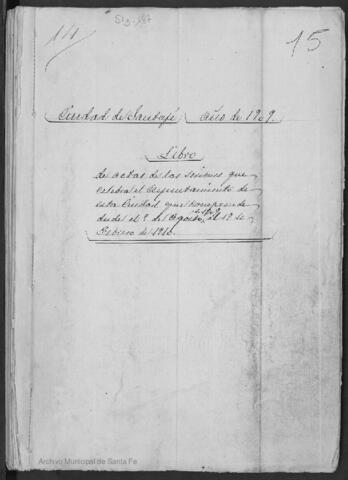 14
Sig-187
15
Ciudad de Santafé Año de 1909.
Libro
de actas de las sesiones que
celebra el Ayuntamiento de
esta Ciudad que comprende
desde el 9 de Agosto, al 12 de
Febrero de 1910.
Archivo Municipal de Santa Fe